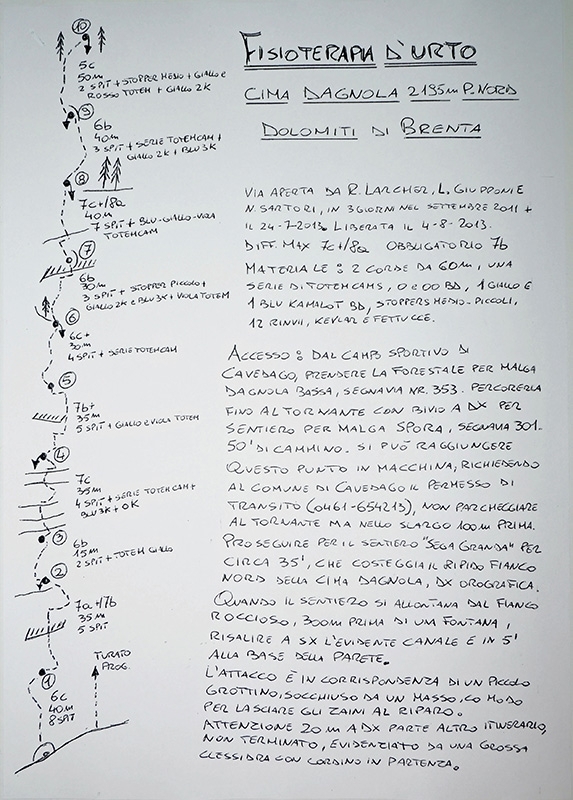 FISIOTERAPIA D'URTO
CIMA DAGNOLA 2195m P. NORD
DOLOMITI DI BRENTA
VIA APERTA DA R. LARCHER, L. GIUPPONI E
N. SARTORI, IN 3 GIORNI NEL SETTEMBRE 2011 +
IL 24-7-2013. LIBERATA IL 4-8-2013.
DIFF. MAX 7c+/8a OBBLIGATORIO 7b
MATERIALE: 2 CORDE DA 60m, UNA
SERIE DI TOTEMCAMS, 0 e 00 BD, 1 GIALLO E
1 BLU KAMALOT BD, STOPPERS MEDIO-PICCOLI,
12 RINVII, KEVLAR E FETTUCCE.
ACCESSO: DAL CAMPO SPORTIVO DI
CAVEDAGO, PRENDERE LA FORESTALE PER MALGA
DAGNOLA BASSA, SEGNAVIA NR. 353. PERCORERLA
FINO AL TORNANTE CON BIVIO A DX PER
SENTIERO PER MALGA SPORA, SEGNAVIA 301.
50' DI CAMMINO. SI PUÒ RAGGIUNGERE
QUESTO PUNTO IN MACCHINA, RICHIEDENDO
AL COMUNE DI CAVEDAGO IL PERMESSO DI
TRANSITO (0461-654213), NON PARCHEGGIARE
AL TORNANTE MA NELLO SLARGO 100m PRIMA.
PROSEGUIRE PER IL SENTIERO "SEGA GRANDA" PER
CIRCA 35', CHE COSTEGGIA IL RIPIDO FIANCO
NORD DELLA CIMA DAGNOLA, DX OROGRAFICA.
QUANDO IL SENTIERO SI ALLONTANA DAL FIANCO
ROCCIOSO, 300m PRIMA DI UM FONTANA,
RISALIRE A SX L'EVIDENTE CANALE E IN 5'
ALLA BASE DELLA PARETE.
L'ATTACCO È IN CORRISPONDENZA DI UN PICCOLO
GROTTINO, SOCCHIUSO DA UN MASSO, COMODO
PER LASCIARE GLI ZAINI AL RIPARO.
ATTENZIONE 20 m A DX PARTE ALTRO ITINERARIO,
NON TERMINATO, EVIDENZIATO DA UNA GROSSA
CLESSIDRA CON CORDINO IN PARTENZA.
10
5c
50m
2 SPIT + STOPPER MEDIO + GIALLO E
ROSSO TOTEM + GIALLO 2K
9
6b
40m
3 SPIT + SERIE TOTEMCAM +
GIALLO 2K + BLU 3K
8
7c+/8a
40m
7 SPIT + BLU-GIALLO-VIOLA
TOTEMCAM
7
6b
30m
3 SPIT + STOPPER PICCOLO +
GIALLO 2K e BLU 3K + VIOLA TOTEM
6
6c+
30m
4 SPIT + SERIE TOTEMCAM
5
7b+
35m
5 SPIT + GIALLO e VIOLA TOTEM
4
7c
35m
4 SPIT + SERIE TOTEM CAM +
BLU 3K + 0K
3
6b
15m
2 SPIT + TOTEM GIALLO
2
7a+/7b
35m
5 SPIT
1
TURATO
PROG.
6c
40m
8 SPIT